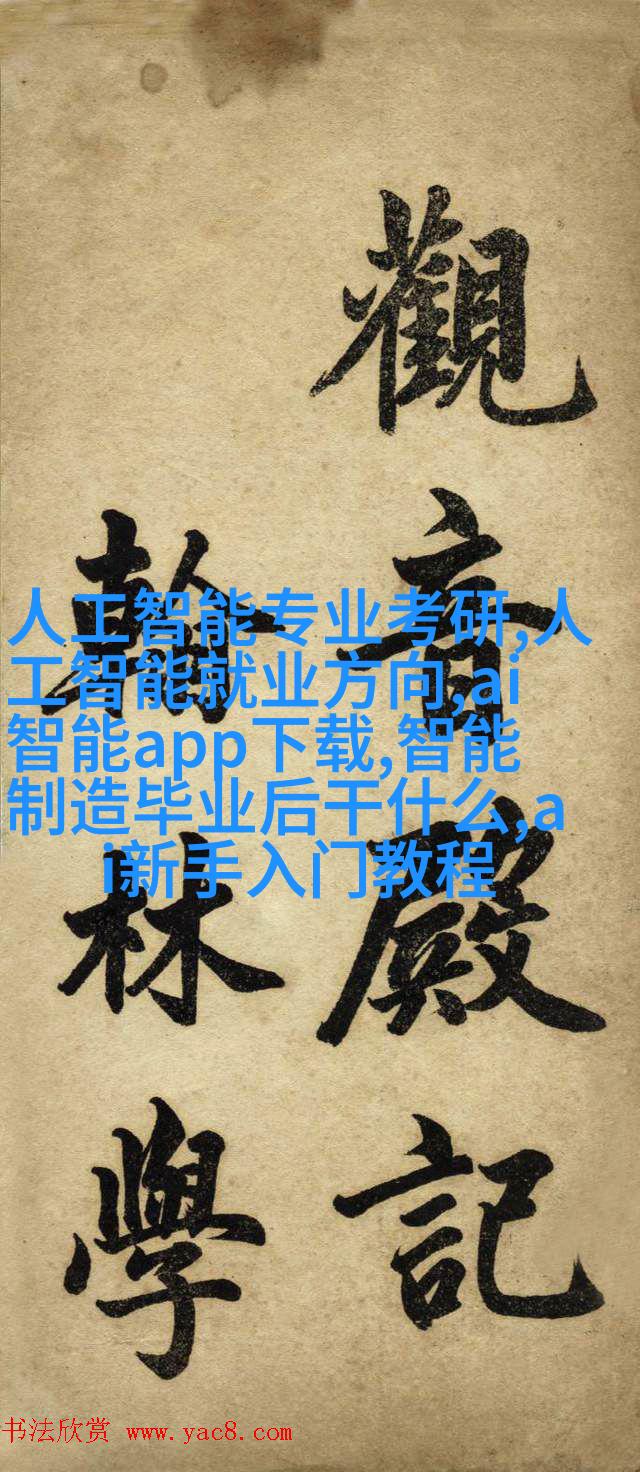 觀音殿記
翰林學
人工智能专业考研,人
工智能就业方向,ai
智能app下载,智能
制造毕业后干什么,a
i新手入门教程
书法欣赏 www.yac8.com